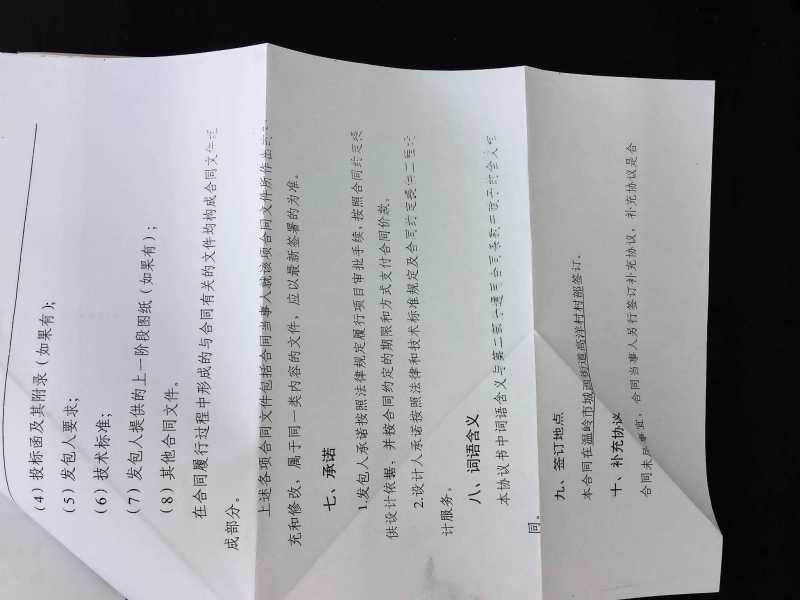 (4) 投标函及其附录（如果有）；
(5) 发包人要求；
(6) 技术标准；
(7) 发包人提供的上一阶段图纸（如果有）；
(8) 其他合同文件。
在合同履行过程中形成的与合同有关的文件均构成合同文件
成部分。
上述各项合同文件包括合同当事人就该项合同文件所作出的
充和修改，属于同一类内容的文件，应以最新签署的为准。
七、承诺
1.发包人承诺按照法律规定履行项目审批手续，按照合同约定提
供设计依据，并按合同约定的期限和方式支付合同价款。
2.设计人承诺按照法律和技术标准规定及合同约定提供工程
计服务。
八、词语含义
本协议书中词语含义与第二部分通用合同条款中赋予的含义
同。
九、签订地点
本合同在温岭市城西街道高洋村村部签订。
十、补充协议
合同未尽事宜，合同当事人另行签订补充协议，补充协议是合